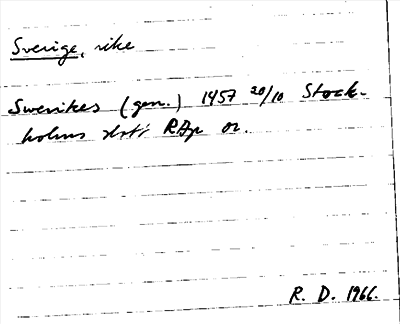 Sverige, rike
Swerikes (gen.) 1457 20/10 Stock-
holms slott RAp or.
R. D. 1966.